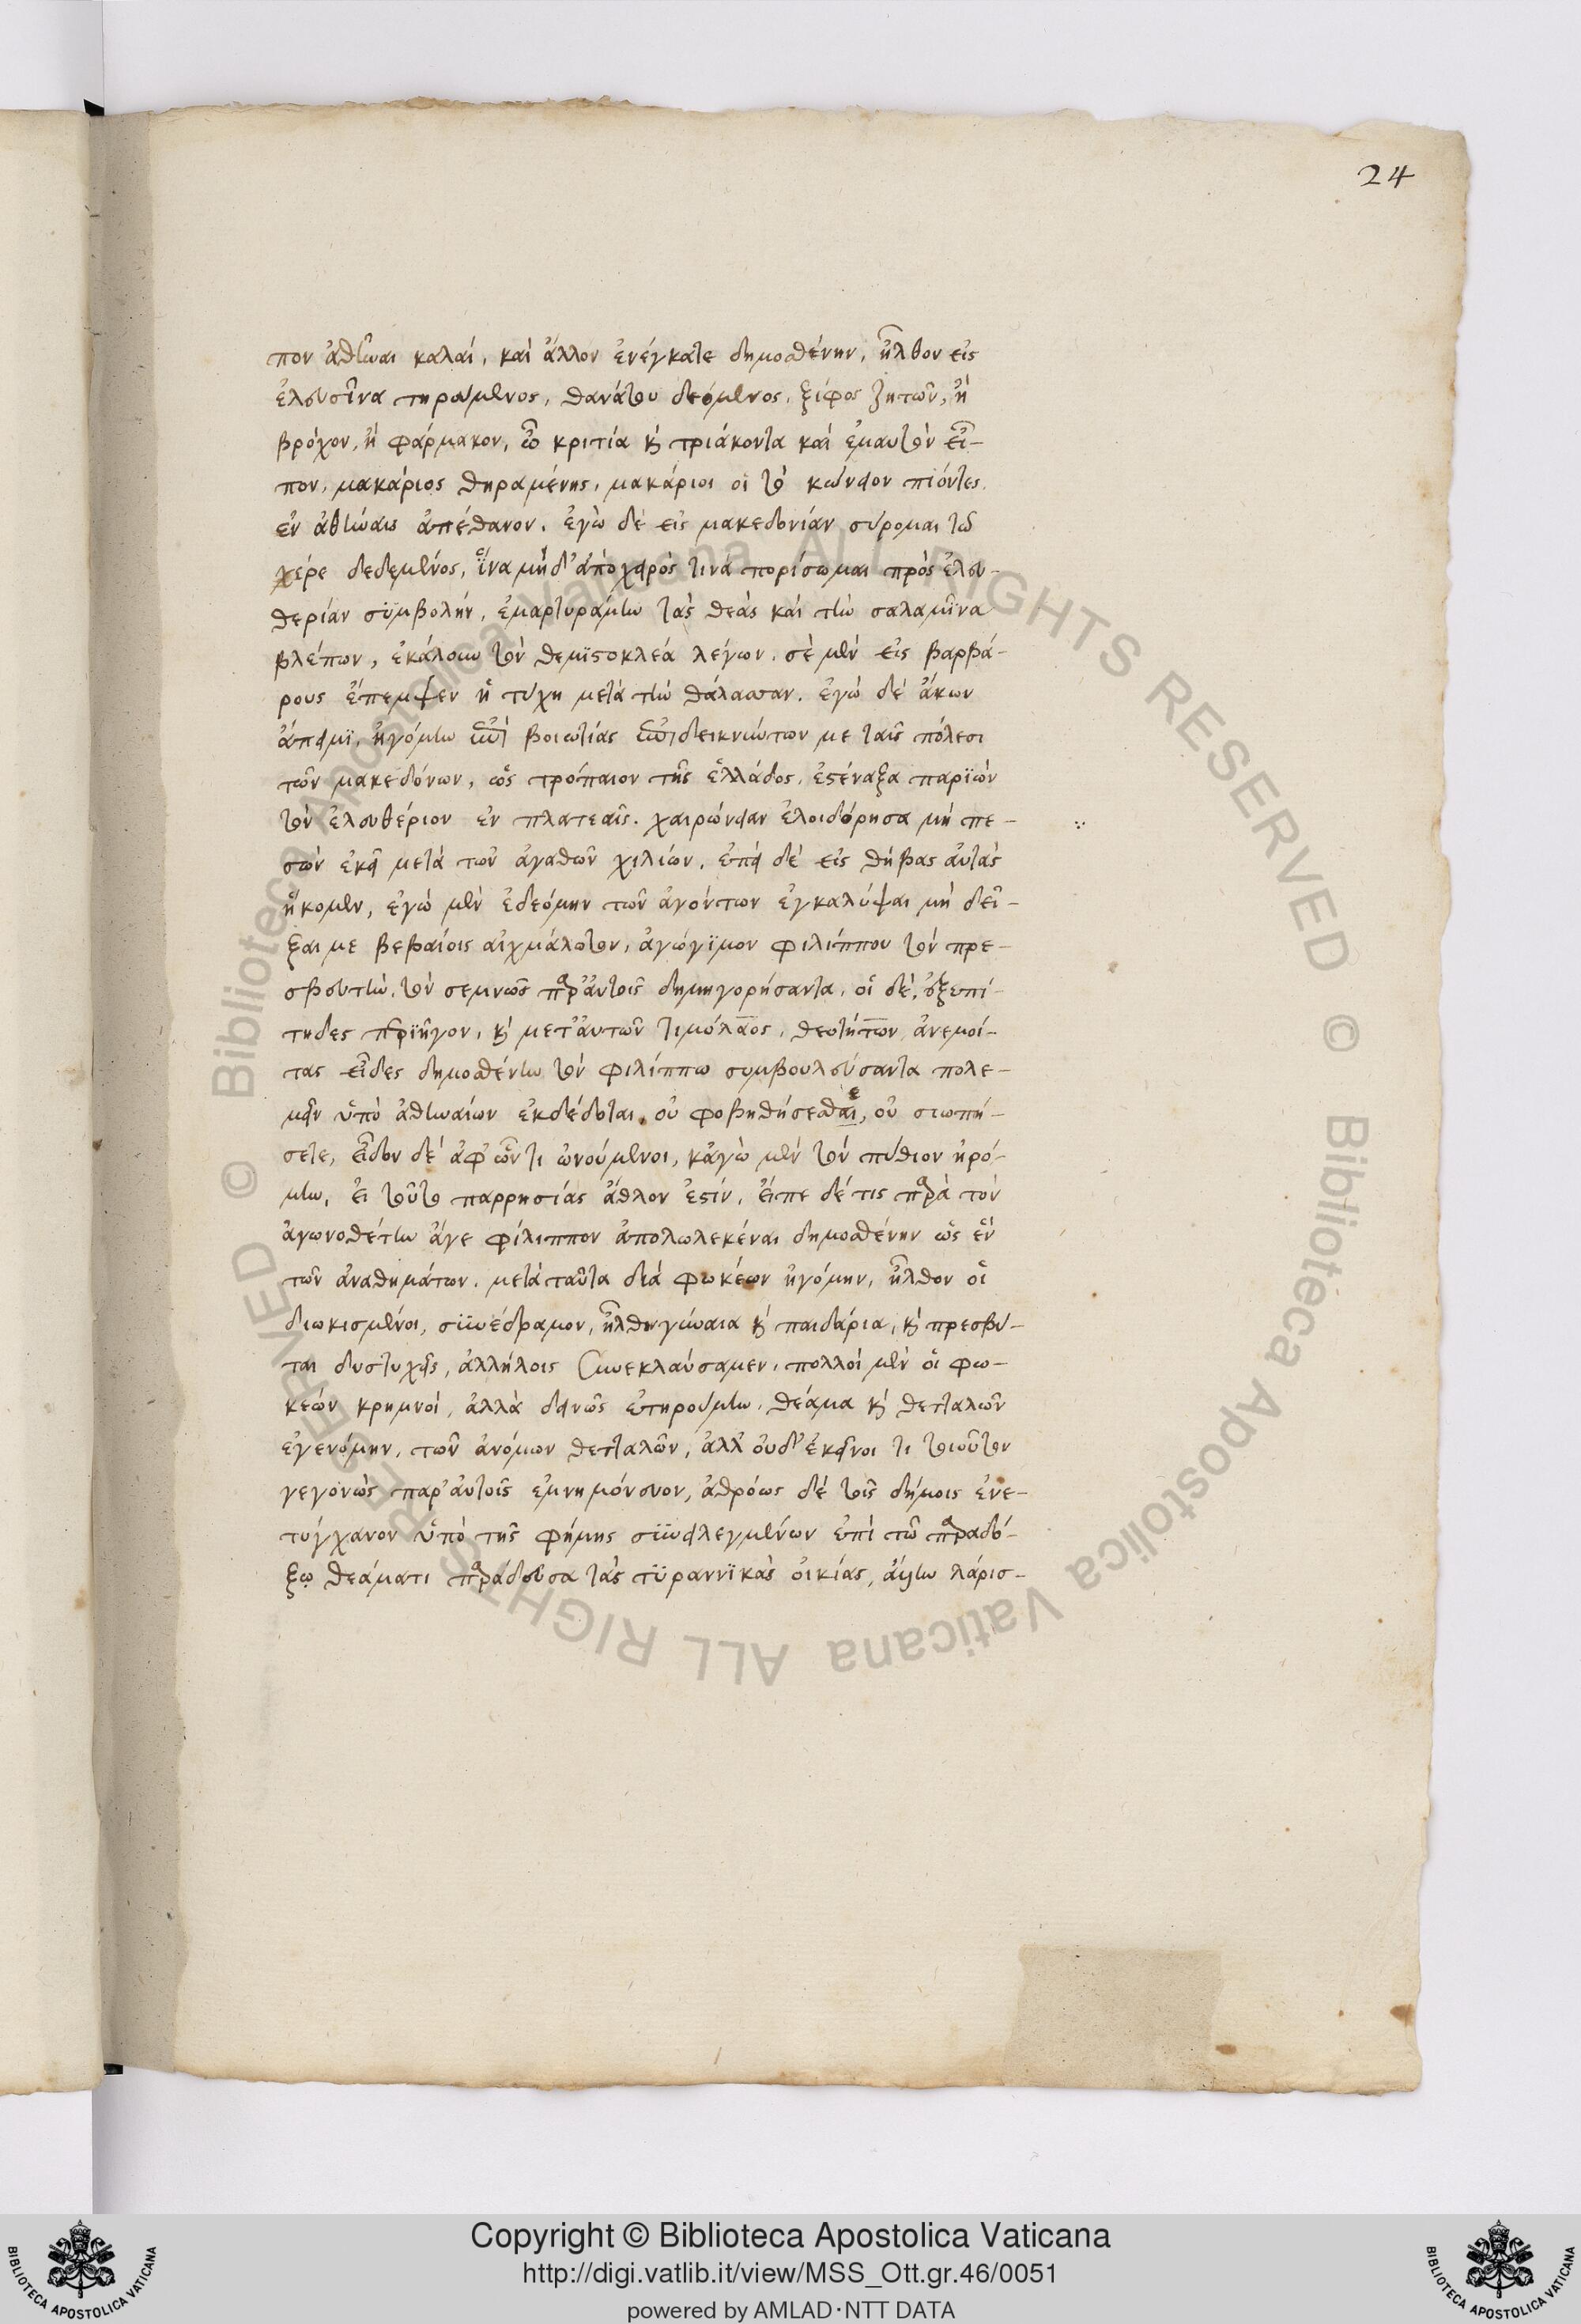 24
πον ἀθῆναι καλαί, καὶ ἄλλον ἐνέγκατε δημοσθένην, ἦλθον εἰς
ἐλευσῖνα τηρούμενος, θανάτου δεόμενος, ξίφος ζητῶν, ἢ
βρόχον, ἢ φάρμακον, ὦ κριτία καὶ τριάκοντα καὶ ἐμαυτὸν εἶ-
πον, μακάριος θηραμένης, μακάριοι οἱ τὸ κώνειον πιόντες,
ἐν ἀθήναις ἀπέθανον. ἐγὼ δὲ εἰς μακεδονίαν σύρομαι τὼ
χέρε δεδεμένος, ἵνα μηδ' ἀπὸ χειρὸς τινὰ πορίσωμαι πρὸς ἐλευ-
θερίαν συμβολήν, ἐμαρτυράμην τὰς θεὰς καὶ τὴν σαλαμῖνα
βλέπων, ἐκάλουν τὸν θεμιστοκλέα λέγων. σὲ μὲν εἰς βαρβά-
ρους ἔπεμψεν ἡ τύχη μετὰ τὴν θάλασσαν. ἐγὼ δὲ ἄκων
ἄπειμι, ἠγόμην ἐπὶ βοιωτίας ἐπιδεικνύντων με ταῖς πόλεσι
τῶν μακεδόνων, ὡς τρόπαιον τῆς ἑλλάδος, ἐστέναξα παριὼν
τὸν ἐλευθέριον ἐν πλατεαῖς. χαιρώνειαν ἐλοιδόρησα μὴ πε-
σὼν ἐκεῖ μετὰ τῶν ἀγαθῶν χιλίων. ἐπεὶ δὲ εἰς θήβας αὐτὰς
ἥκομεν, ἐγὼ μὲν ἐδεόμην τῶν ἀγόντων ἐγκαλύψαι μὴ δεῖ-
ξαι με βεβαίοις αἰχμάλωτον, ἀγώγιμον φιλίππου τὸν πρε-
σβευτὴν, τὸν σεμνῶς παρ' αὐτοῖς δημηγορήσαντα, οἱ δὲ, ἐξεπί-
τηδες περιῆγον, καὶ μετ' αὐτῶν τιμόλαος, θεοτήτων, ἀνεμοί-
τας εἶδες δημοσθένην τὸν φιλίππω συμβουλεύσαντα πολε-
μεῖν ὑπὸ ἀθηναίων ἐκδέδοται, οὐ φοβηθήσεσθαι, οὐ σιωπή-
σετε, εἶδον δὲ ἀφ' ὧν τι ὠνούμενοι, κἀγὼ μὲν τὸν πύθιον ἠρό-
μην, εἰ τοῦτο παρρησίας ἆθλον ἐστίν, εἶπε δέ τις παρὰ τὸν
ἀγωνοθέτην ἄγε φίλιππον ἀπολωλεκέναι δημοσθένην ὡς ἓν
τῶν ἀναθημάτων. μετὰ ταῦτα διὰ φωκέων ἠγόμην, ἦλθον οἱ
διωκισμένοι, συνέδραμον, ἦλθον γύναια καὶ παιδάρια, καὶ πρεσβύ-
ται δυστυχεῖς, ἀλλήλοις συνεκλαύσαμεν, πολλοὶ μὲν οἱ φω-
κέων κρημνοί, ἀλλὰ δεινῶς ἐτηρούμην. θέαμα καὶ θετταλῶν
ἐγενόμην, τῶν ἀνόμων θετταλῶν, ἀλλ' οὐδ' ἐκεῖνοι τι τοιοῦτον
γεγονὼς παρ' αὐτοῖς ἐμνημόνευον, ἀθρόως δὲ τοῖς δήμοις ἐνε-
τύγχανον ὑπὸ τῆς φήμης συνειλεγμένων ἐπὶ τῶ παραδό-
ξω θεάματι παράδουσα τὰς τυραννικὰς οἰκίας, λάρισ-
Copyright © Biblioteca Apostolica Vaticana
http://digi.vatlib.it/view/MSS_Ott.gr.46/0051
powered by AMLAD·NTT DATA